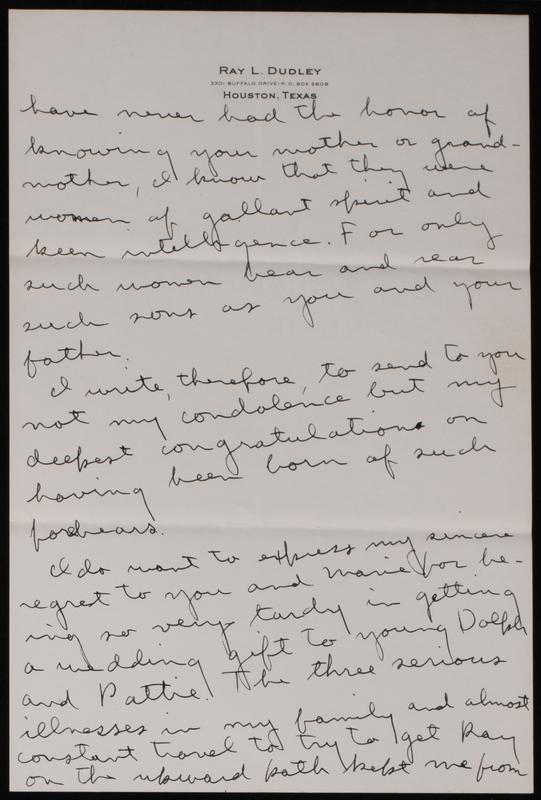 RAY L. DUDLEY
3301 BUFFALO DRIVE • P. O. BOX 2608
HOUSTON, TEXAS
have never had the honor of
knowing your mother or grand-
mother, I know that they were
women of gallant spirit and
keen intelligence. For only
such women bear and rear
such sons as you and your
father.
I write, therefore, to send to you
not my condolence but my
deepest congratulations on
having been born of such
forbears.
I do want to express my sincere
regret to you and Marie for be-
ing so very tardy in getting
a wedding gift to young Dolph
and Pattie. The three serious
illnesses in my family and almost
constant travel to try to get Ray
on the upward path kept me from